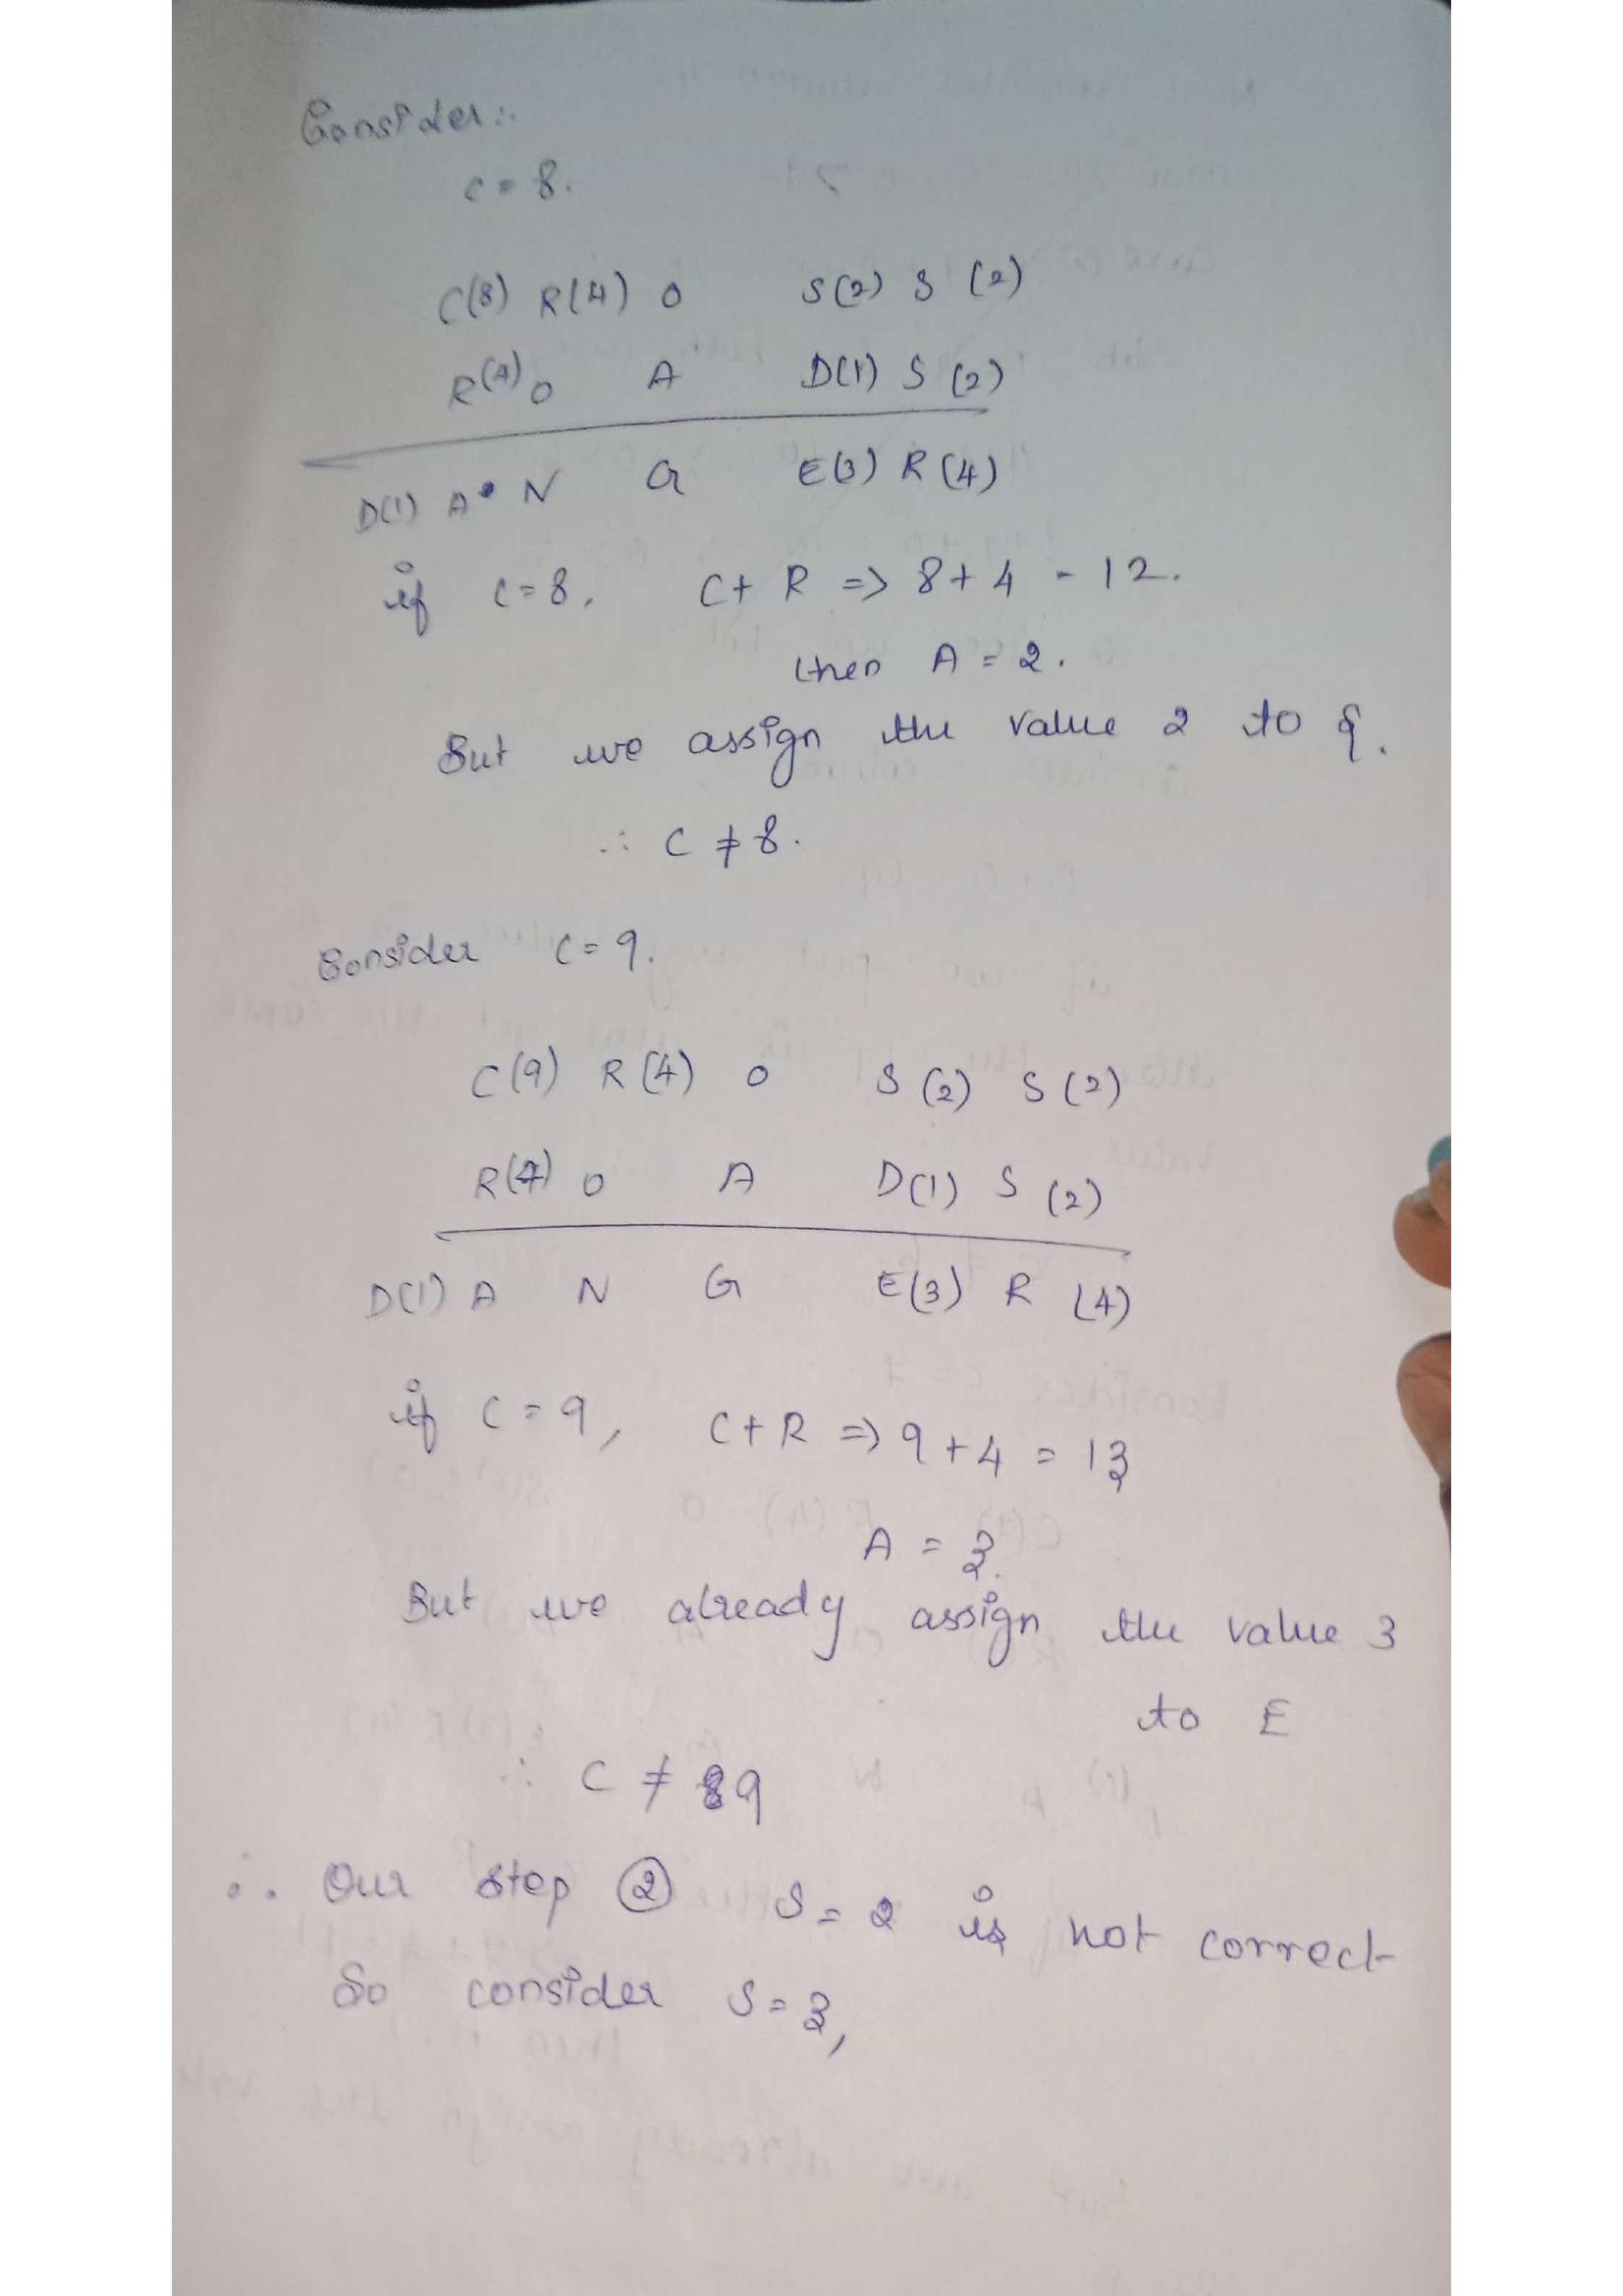 Consider:
C = 8.
C(8) R(4) O S(2) S (2)
R(4) O A D(1) S (2)
D(1) A N G E(3) R (4)
if C = 8, C + R => 8 + 4 - 12.
then A = 2.
But we assign the value 2 to S.
∴ C ≠ 8.
Consider C = 9.
C(9) R(4) O S (2) S (2)
R(4) O A D(1) S (2)
D(1) A N G E(3) R (4)
if C = 9, C + R => 9 + 4 = 13
A = 3.
But we already assign the value 3
to E
∴ C ≠ 9
∴ Our step ② S = 2 is not correct
So consider S = 3,